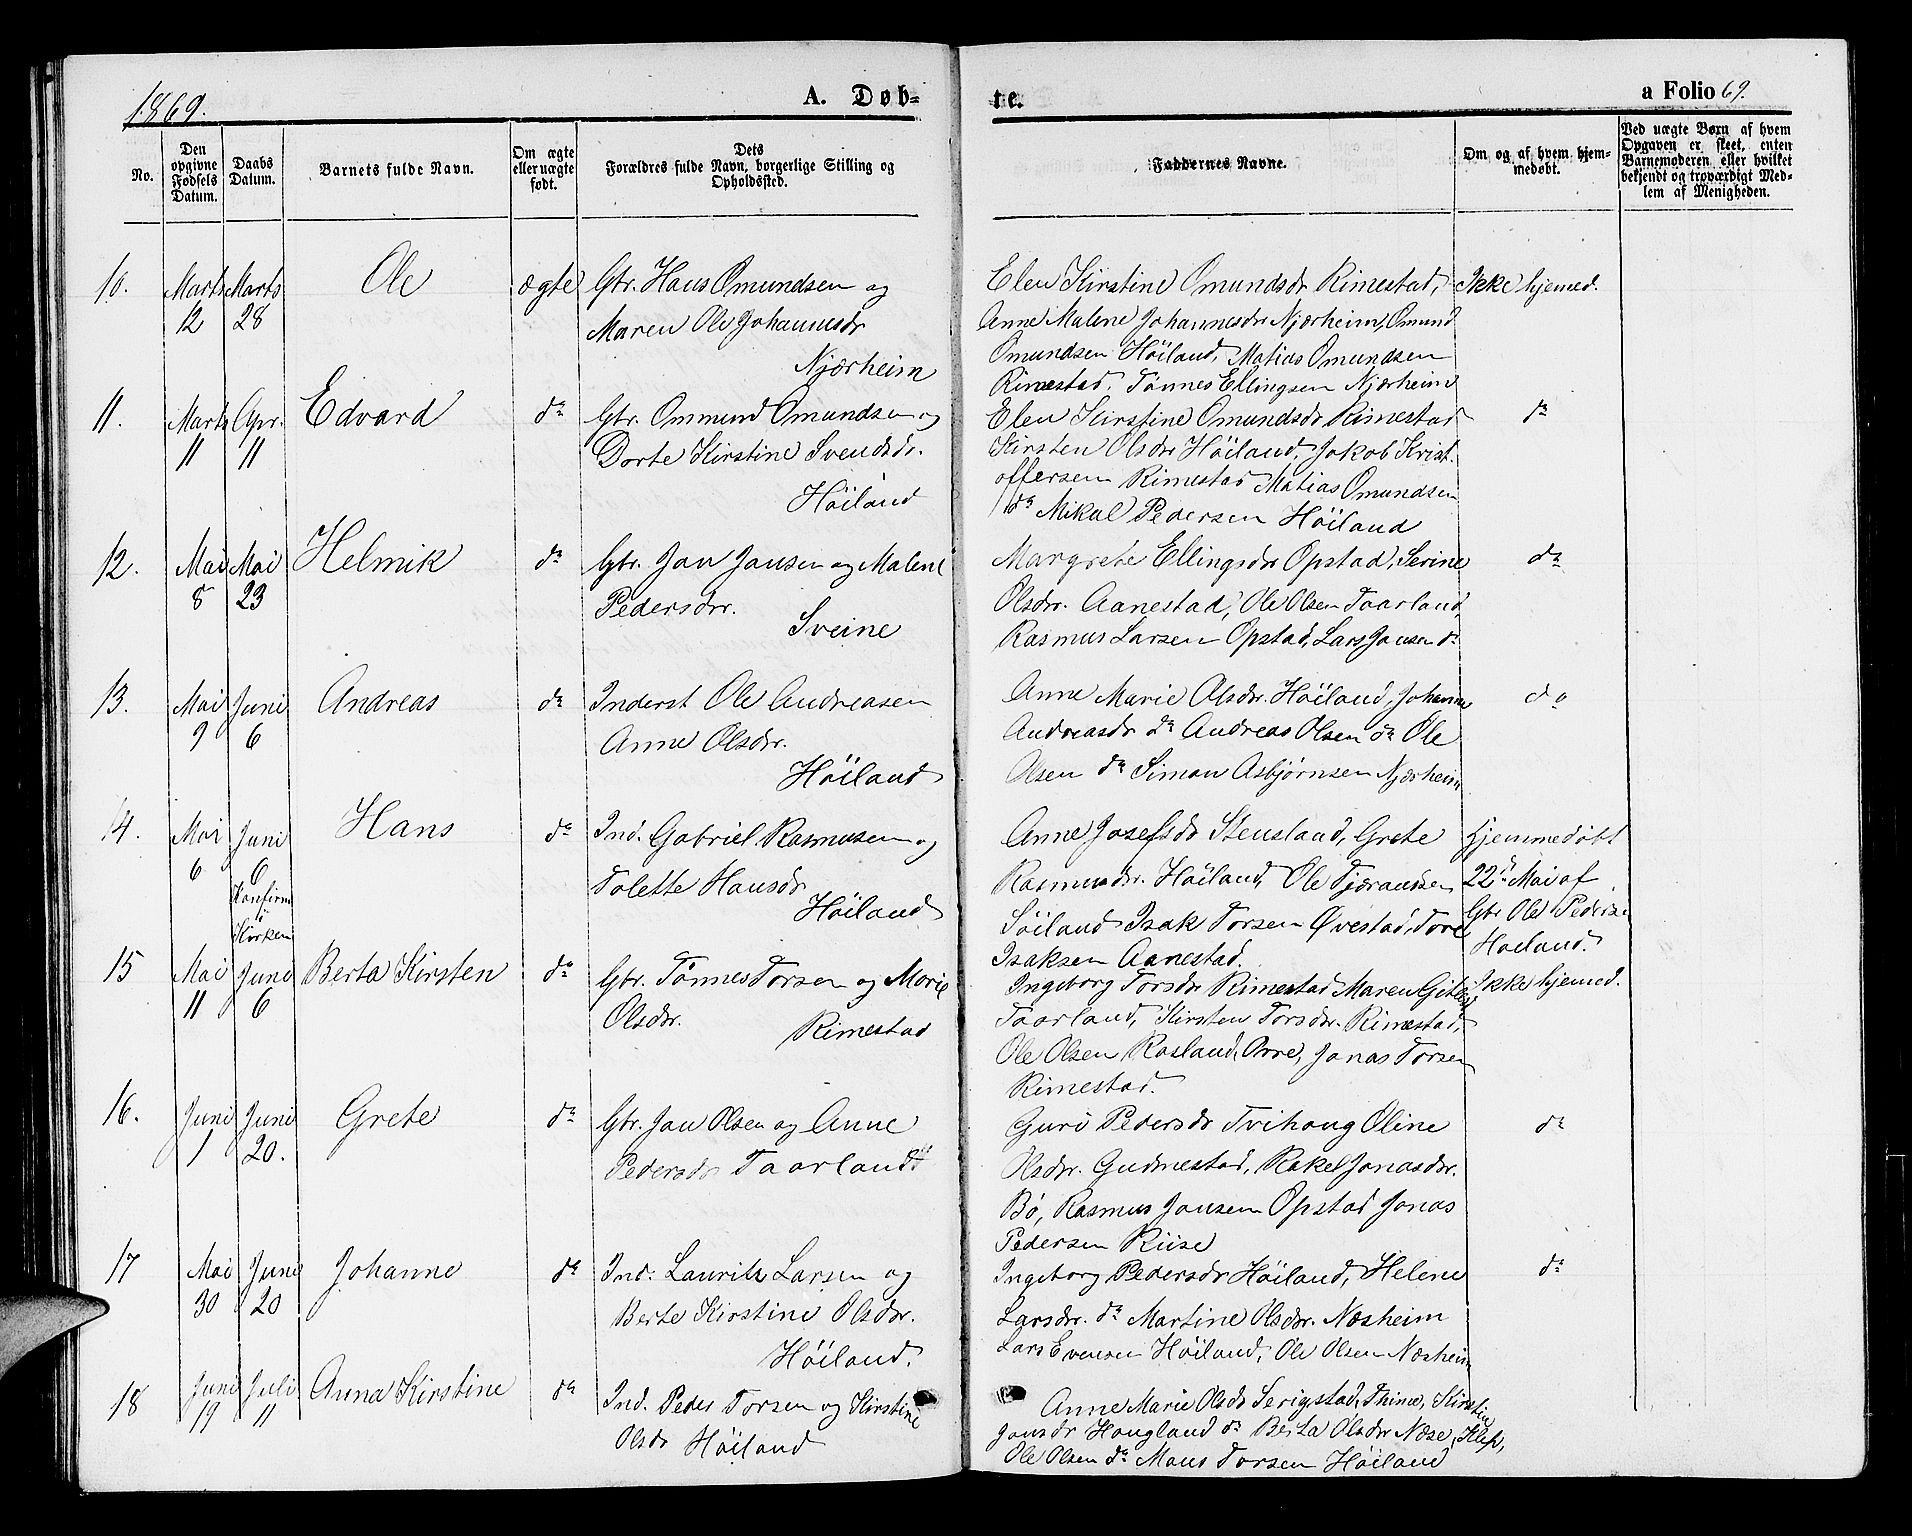 1869.
A. Døbte.
a Folio 69.
No.
Den opgivne Fødsels Datum.
Daabs Datum.
Barnets fulde Navn.
Om ægte eller uægte født.
Dets Forældres fulde Navn, borgerlige Stilling og Opholdssted.
Faddernes Navne.
Om og af hvem hjemmedøbt.
Ved uægte Børn af hvem Opgaven er skeet, enten Barnemoderen eller hvilket bekjendt og troværdigt Medlem af Menigheden.
10. Marts 12 Marts 28 Ole ægte
Gbr. Hans Omundsen og
Maren Ole Johannesdr
Njærheim
Elen Kirstine Omundsdr Rimestad,
Anne Malene Johannesdr Njærheim, Omund
Omundsen Höiland, Matias Omundsen
Rimestad. Tönnes Ellingsen Njærheim
Ikke hjemed.
11. Marts 11 Apr. 11 Edvard do
Gbr. Ommund Omundsen og
Dorte Kirstine Svendsdr.
Höiland
Elen Kirstine Omundsdr Rimestad
Kirsten Olsdr Höiland, Jakob Krist-
offersen Rimestad Matias Omundsen
do Mikal Pedersen Höiland
do
12. Mai 8 Mai 23 Helmik do
Gbr. Jan Jansen og Malene
Pedersdr.
Sveine
Margrete Ellingsdr Opstad, Serine
Olsdr. Aanestad, Ole Olsen Taarland,
Rasmus Larsen Opstad, Lars Jansen do
do
13. Mai 9 Juni 6 Andreas do
Inderst Ole Andreasen
Anne Olsdr.
Höiland
Anne Marie Olsdr. Höiland, Johanne
Andreasdr do Andreas Olsen do Ole
Olsen do Simon Asbjørnsen Njærheim
do
14. Mai 6 Juni 6 Konfirm i Kirken Hans do
Ind. Gabriel Rasmusen og
Tolette Hansdr
Höiland
Anne Josefsdr Stensland, Grete
Rasmusdr. Höiland, Ole Tjærandsen
Söiland Isak Torsen Øvestad, Tore
Isaksen Aanestad.
Hjemmedøbt
22de Mai af
Gbr Ole Pedersen
Høiland.
15 Mai 11 Juni 6 Berta Kirsten do
Gbr. Tönnes Torsen og Marie
Olsdr.
Rimestad
Ingeborg Torsdr Rimestad Maren
Taarland, Kirsten Torsdr. Rimestad,
Ole Olsen Rosland, Orre, Jonas Torsen
Rimestad.
Ikke hjemed.
16. Juni 1 Juni 20. Grete do
Gbr. Jan Olsen og Anne
Pedersdr Taarland
Guri Pedersdr Tvihaug Oline
Olsdr. Gudmestad, Rakel Jonasdr.
Bö, Rasmus Jansen Opstad Jonas
Pedersen Riise
do
17 Mai 30 Juni 20 Johanne do
Ind: Lauritz Larsen og
Berte Kirstine Olsdr.
Höiland.
Ingeborg Pedersdr Höiland, Helene
Larsdr. do Martine Olsdr. Næsheim
Lars Evensen Höiland, Ole Olsen Næsheim
do
18 Juni 19 Juli 11 Anna Kirstine do
Ind. Peder Torsen og Kirstine
Olsdr Höiland
Anne Marie Olsdr Serigstad, Thime, Kirstine
Jansdr Haugland do Berta Olsdr Næse, Klep,
Ole Olsen do Maus Torsen Höiland